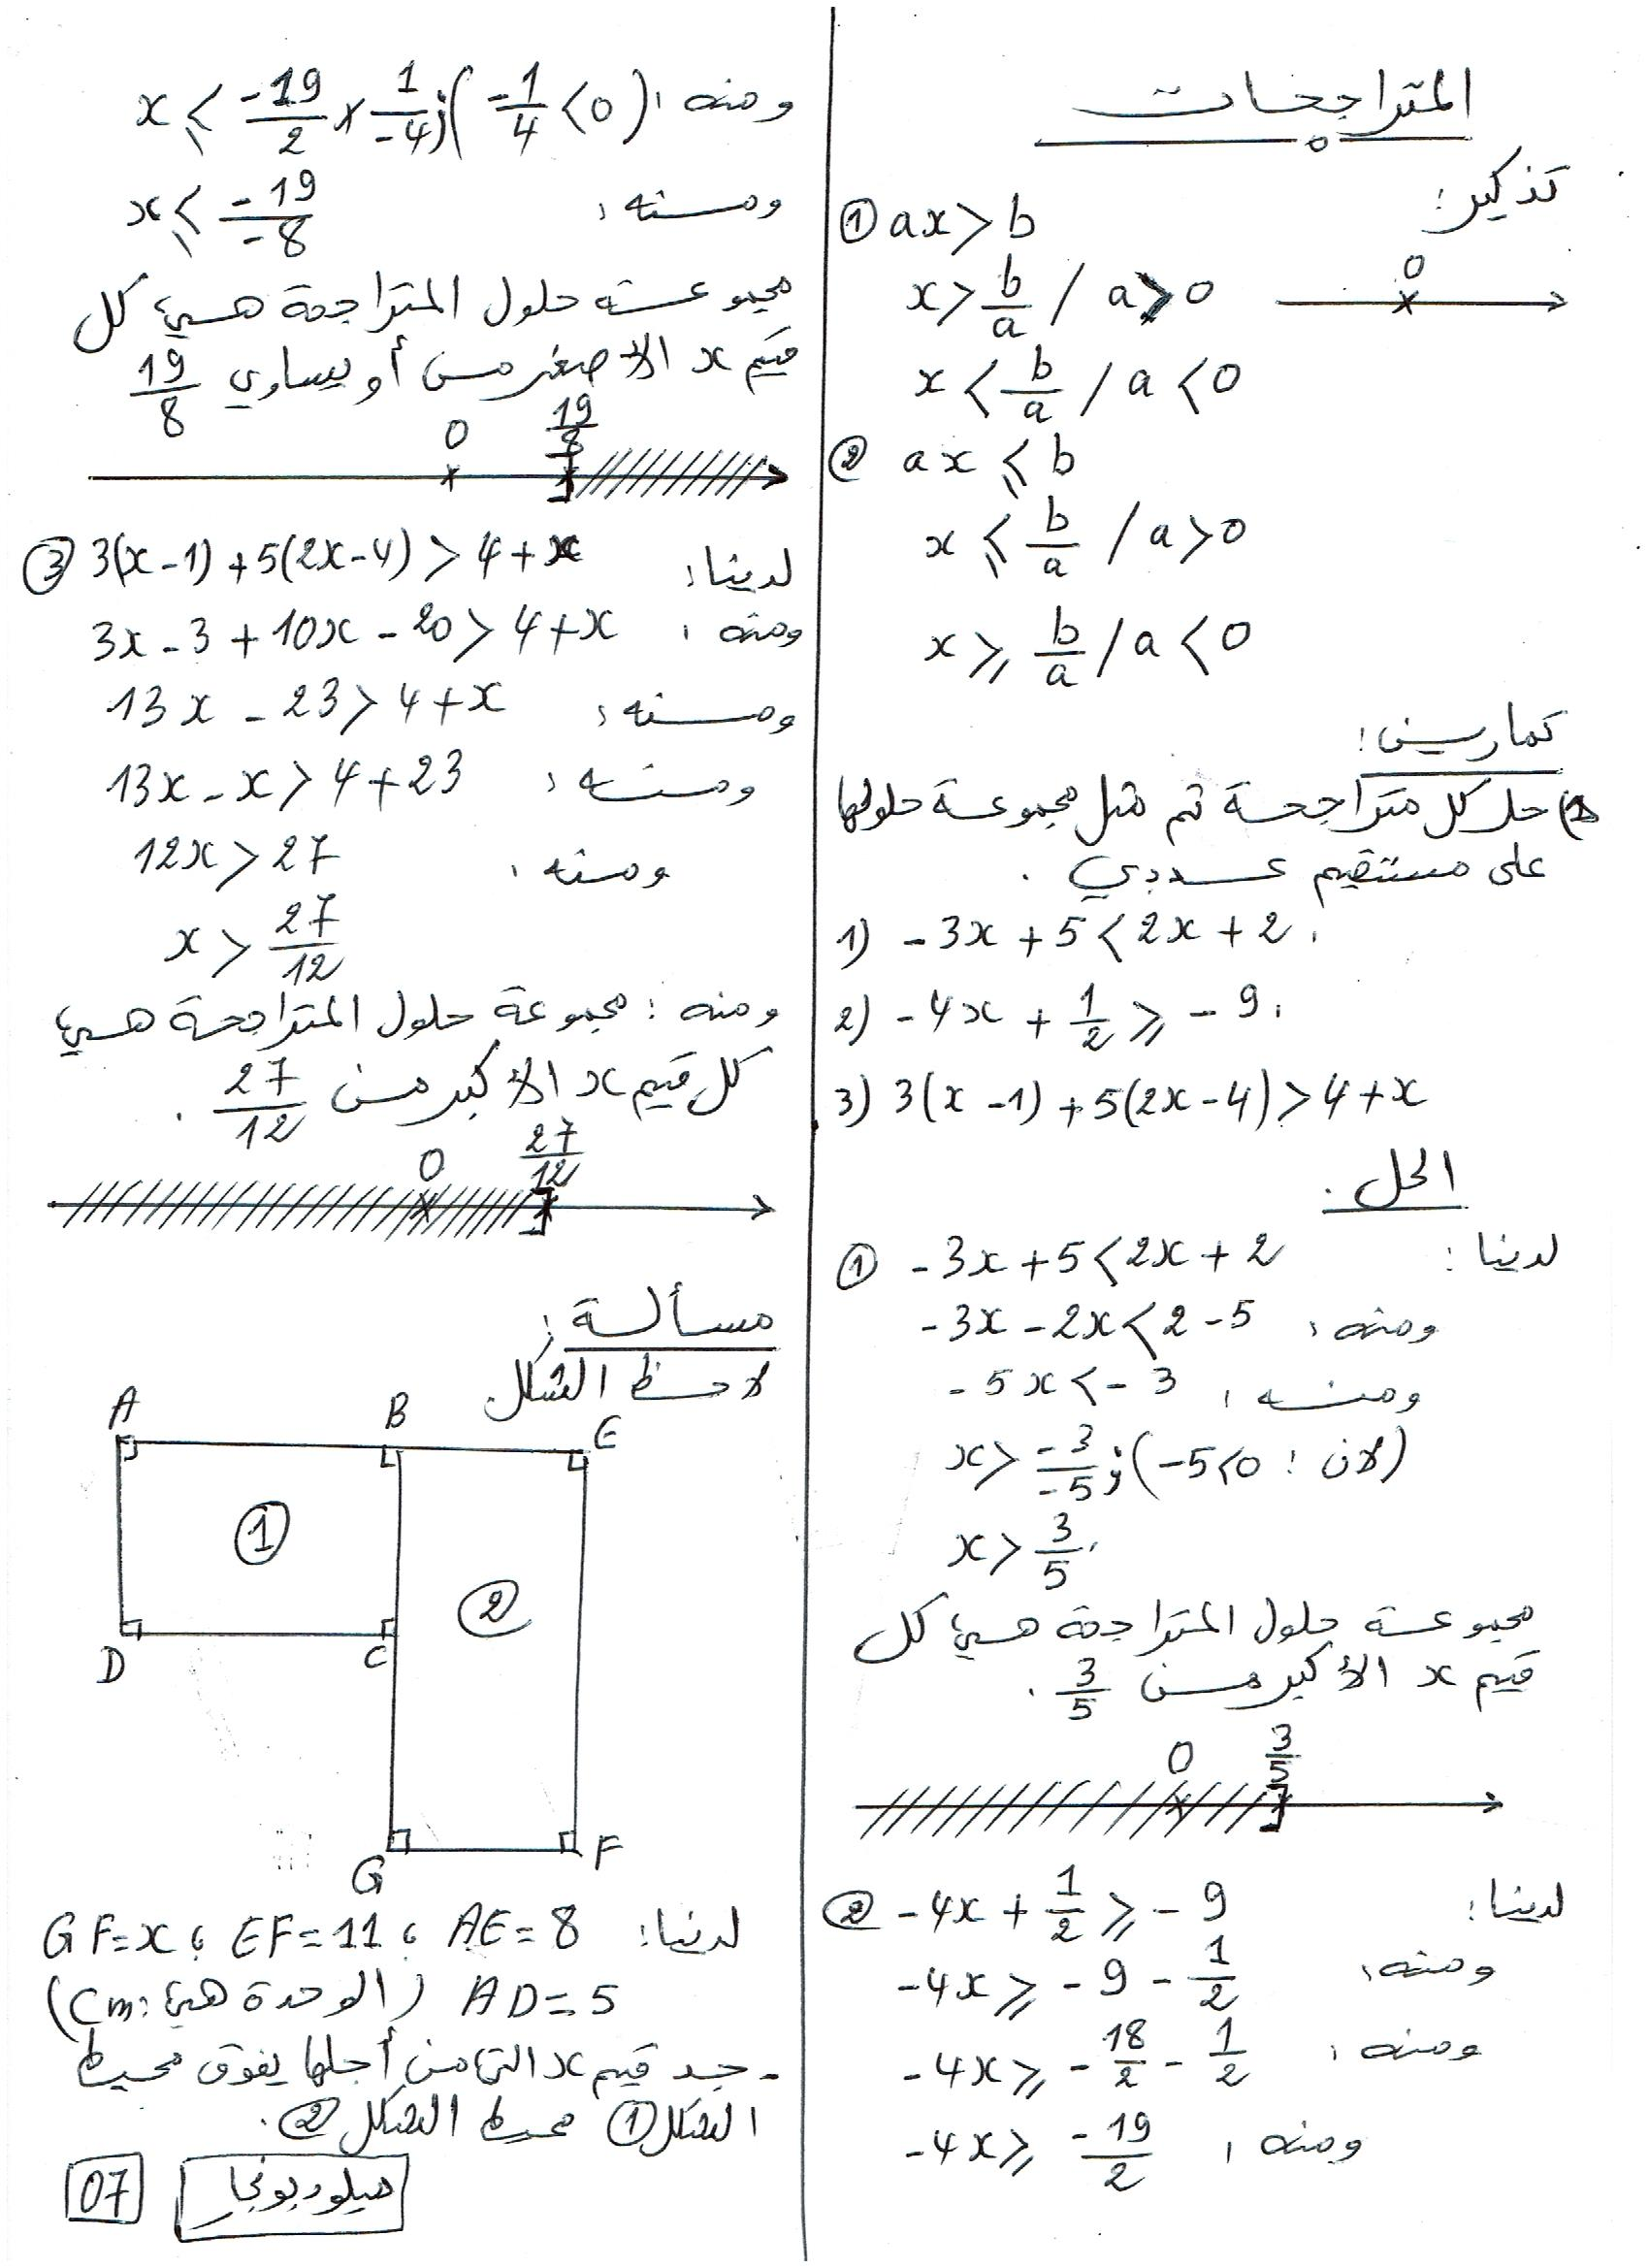 المتراجحات
تذكير:
① ax > b
x > b/a / a > 0
0
x < b/a / a < 0
② ax ⩽ b
x ⩽ b/a / a > 0
x ⩾ b/a / a < 0
تمارين:
1) حل كل متراجحة ثم مثل مجموعة حلولها
على مستقيم عددي .
1) -3x + 5 < 2x + 2 .
2) -4x + 1/2 ⩾ -9 .
3) 3(x - 1) + 5(2x - 4) > 4 + x
الحل .
لدينا: ① -3x + 5 < 2x + 2
ومنه: -3x - 2x < 2 - 5
ومنه: -5x < -3
x > -3/-5 ; (لان : -5 < 0)
x > 3/5 .
مجموعة حلول المتراجحة هي كل
قيم x الأكبر من 3/5 .
0 3/5
لدينا: ② -4x + 1/2 ⩾ -9
ومنه: -4x ⩾ -9 - 1/2
ومنه: -4x ⩾ -18/2 - 1/2
ومنه: -4x ⩾ -19/2
ومنه: x ⩽ -19/2 × 1/-4 ; (-1/4 < 0)
ومنه: x ⩽ -19/-8
مجموعة حلول المتراجحة هي كل
قيم x الأصغر من أو يساوي 19/8
0 19/8
لدينا: ③ 3(x - 1) + 5(2x - 4) > 4 + x
ومنه: 3x - 3 + 10x - 20 > 4 + x
ومنه: 13x - 23 > 4 + x
ومنه: 13x - x > 4 + 23
ومنه: 12x > 27
x > 27/12
ومنه : مجموعة حلول المتراجحة هي
كل قيم x الأكبر من 27/12 .
0 27/12
مسألة :
لاحظ الشكل
A B E
①
②
D C
G F
لدينا: AE = 8 ، EF = 11 ، GF = x
AD = 5 (الوحدة هي: cm)
- جد قيم x التي من أجلها يفوق محيط
الشكل ① محيط الشكل ② .
ميلود بونجار
07